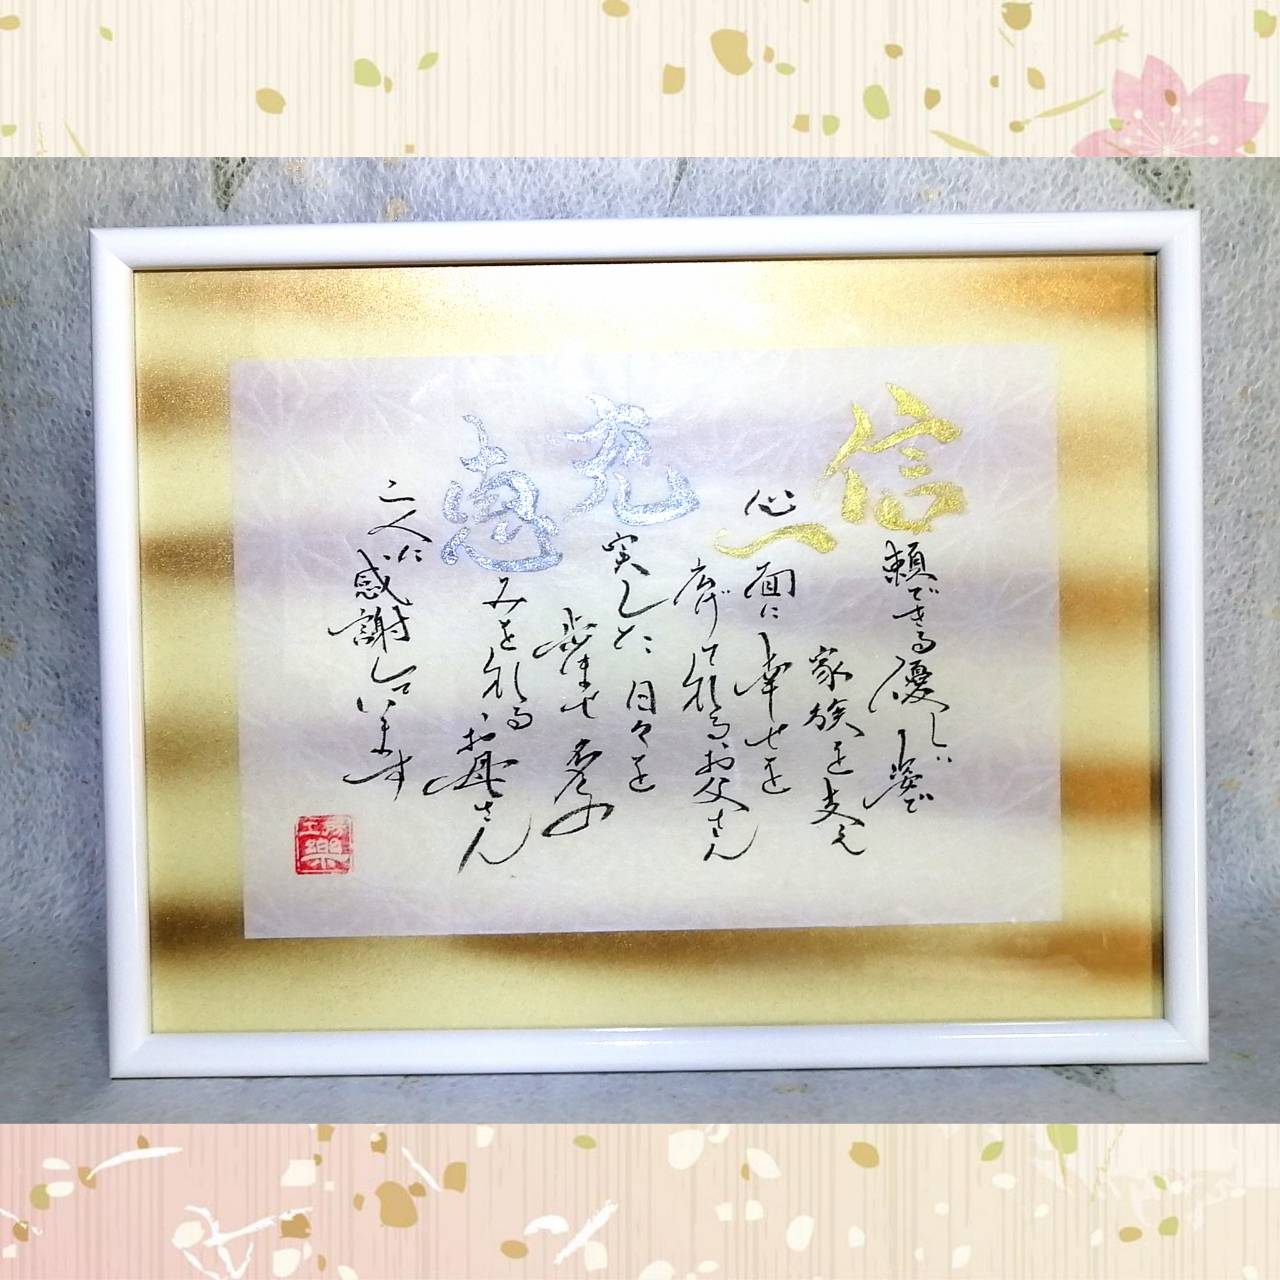 信頼できる優しい姿で
家族を支え
心一面に幸せを
広げて行くお父さん
充実した日々を
歩ませ
恵みを行くお母さん
二人に感謝しています
工房
樂